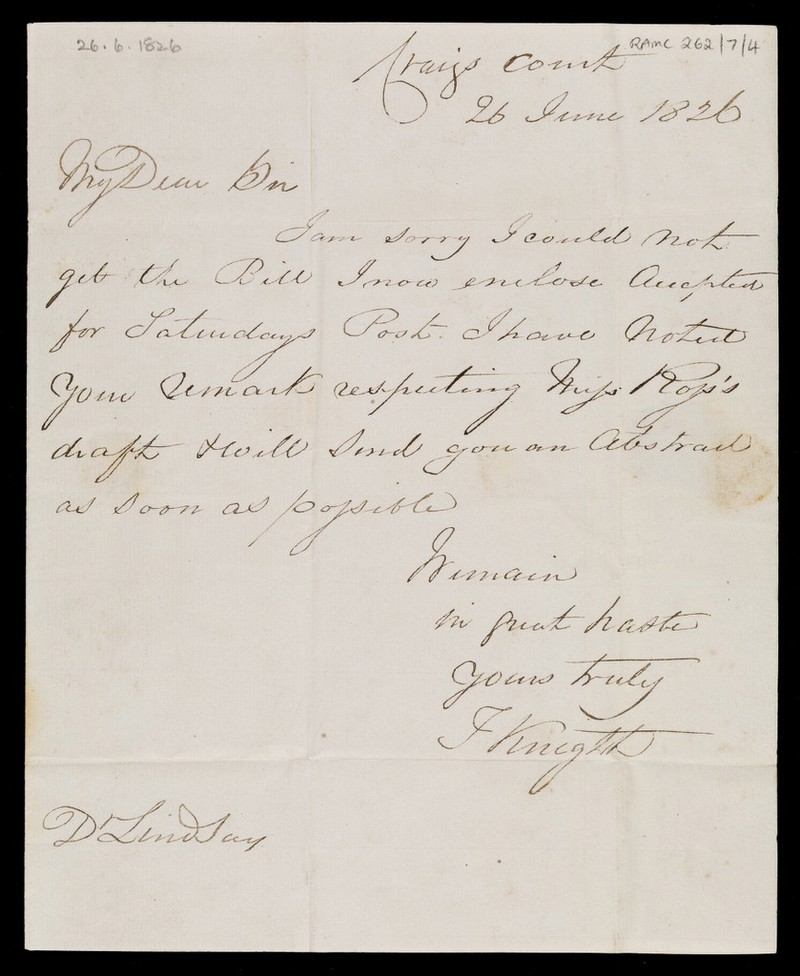 26.6.1826
RAMC 262/7/4
Craigs Court
26 June 1826
My Dear Sir
I am sorry I could not
get the Bill I now enclose Accepted
for Saturdays Post. I have Noted
Your remark respecting Miss Ross's
draft & Will Send you an Abstract
as soon as possible
I remain
in great haste
Yours truly
J Knight
Dr Lindsay